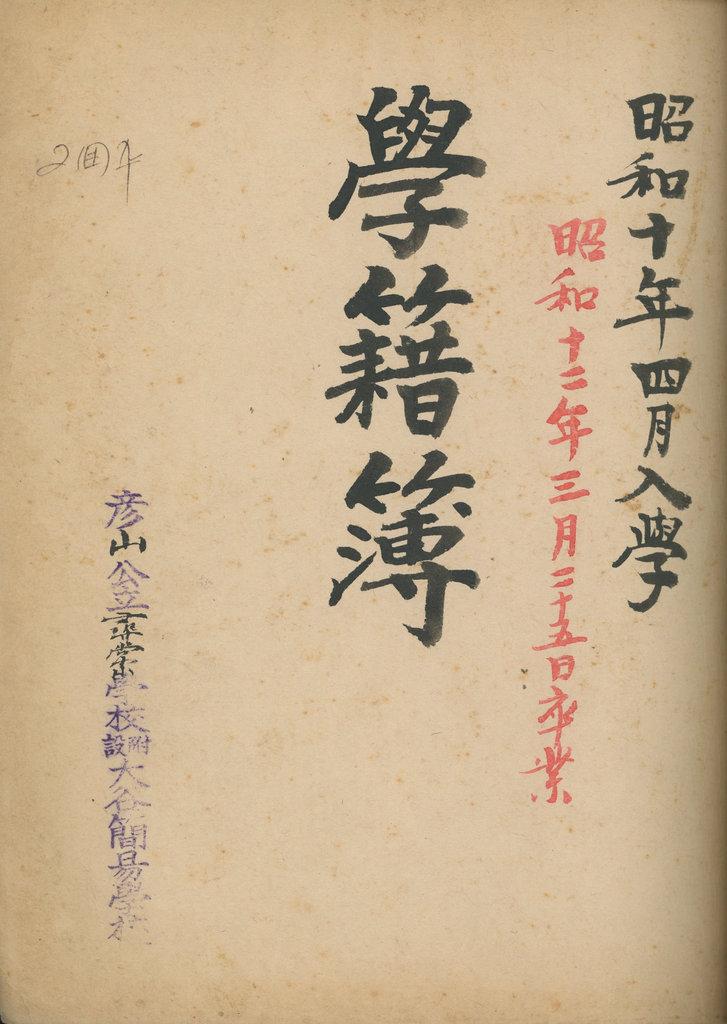 昭和十年四月入學
昭和十二年三月二十五日卒業
學籍簿
彦山公立尋常學校附設大谷簡易學校